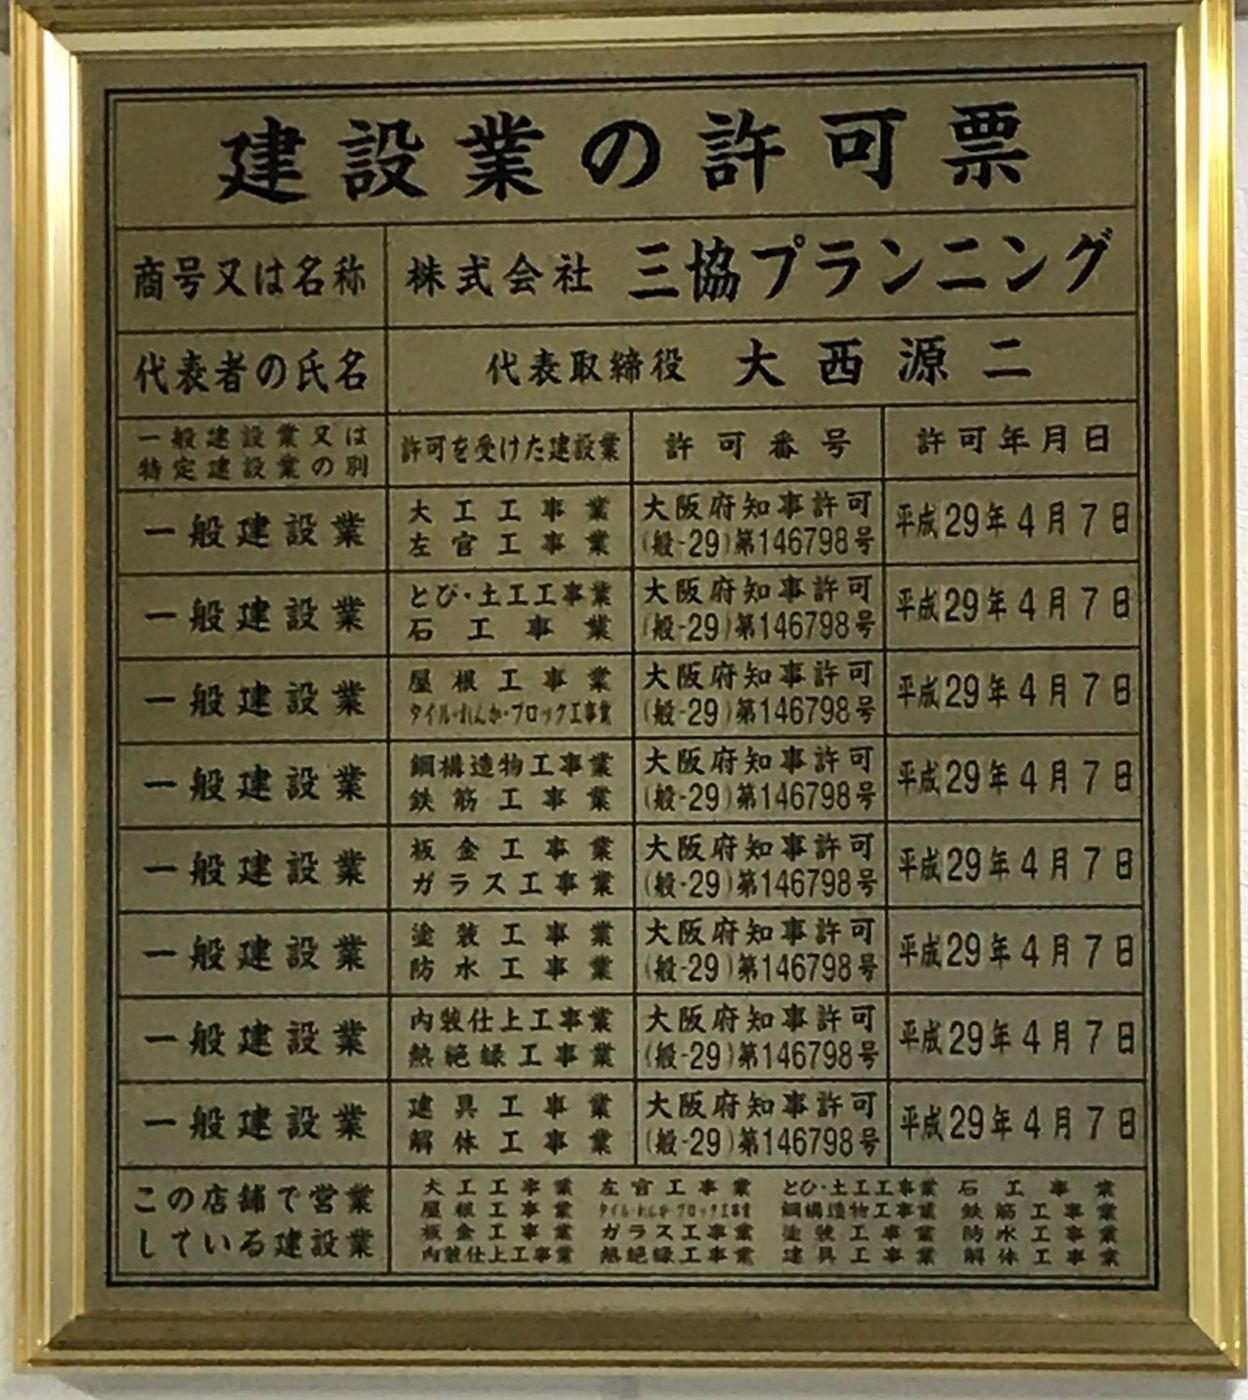 建設業の許可票
商号又は名称 株式会社 三協プランニング
代表者の氏名 代表取締役 大西源二
一般建設業又は
特定建設業の別
許可を受けた建設業 許可番号 許可年月日
一般建設業
大工工事業
左官工事業
大阪府知事許可
(般-29)第146798号
平成29年4月7日
一般建設業
とび・土工工事業
石工事業
大阪府知事許可
(般-29)第146798号
平成29年4月7日
一般建設業
屋根工事業
タイル・れんが・ブロック工事業
大阪府知事許可
(般-29)第146798号
平成29年4月7日
一般建設業
鋼構造物工事業
鉄筋工事業
大阪府知事許可
(般-29)第146798号
平成29年4月7日
一般建設業
板金工事業
ガラス工事業
大阪府知事許可
(般-29)第146798号
平成29年4月7日
一般建設業
塗装工事業
防水工事業
大阪府知事許可
(般-29)第146798号
平成29年4月7日
一般建設業
内装仕上工事業
熱絶縁工事業
大阪府知事許可
(般-29)第146798号
平成29年4月7日
一般建設業
建具工事業
解体工事業
大阪府知事許可
(般-29)第146798号
平成29年4月7日
この店舗で営業
している建設業
大工工事業 左官工事業 とび・土工工事業 石工事業
屋根工事業 タイル・れんが・ブロック工事業 鋼構造物工事業 鉄筋工事業
板金工事業 ガラス工事業 塗装工事業 防水工事業
内装仕上工事業 熱絶縁工事業 建具工事業 解体工事業